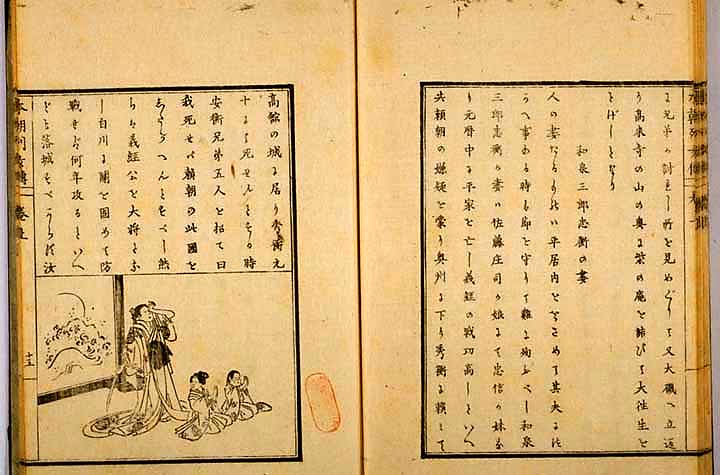 兄弟の討死し所を見めぐりて又大磯へ立返
り高来寺の山の奥に柴の庵を結びて大往生を
とげしとなり
和泉三郎忠衡の妻
人の妻たるものハ平居内をおさめて其夫につ
かへ事ある時も節を守りて難に殉ふべし和泉
三郎忠衡の妻ハ佐藤庄司の娘にて忠信の妹な
り元暦中に平家を亡し義経の戦功高しといへ
共頼朝の嫌疑を蒙り奥州に下り秀衡を頼して
高舘の城に居り秀衡元
死せんとする時
安衡兄弟五人を招て曰
我死せバ頼朝の此國を
んとすべし然
らバ義經公を大将とな
し白川に關を固めて防
戦せば何年攻るといへ
ども落城すべからず汝
本朝列女傳 巻五
十三